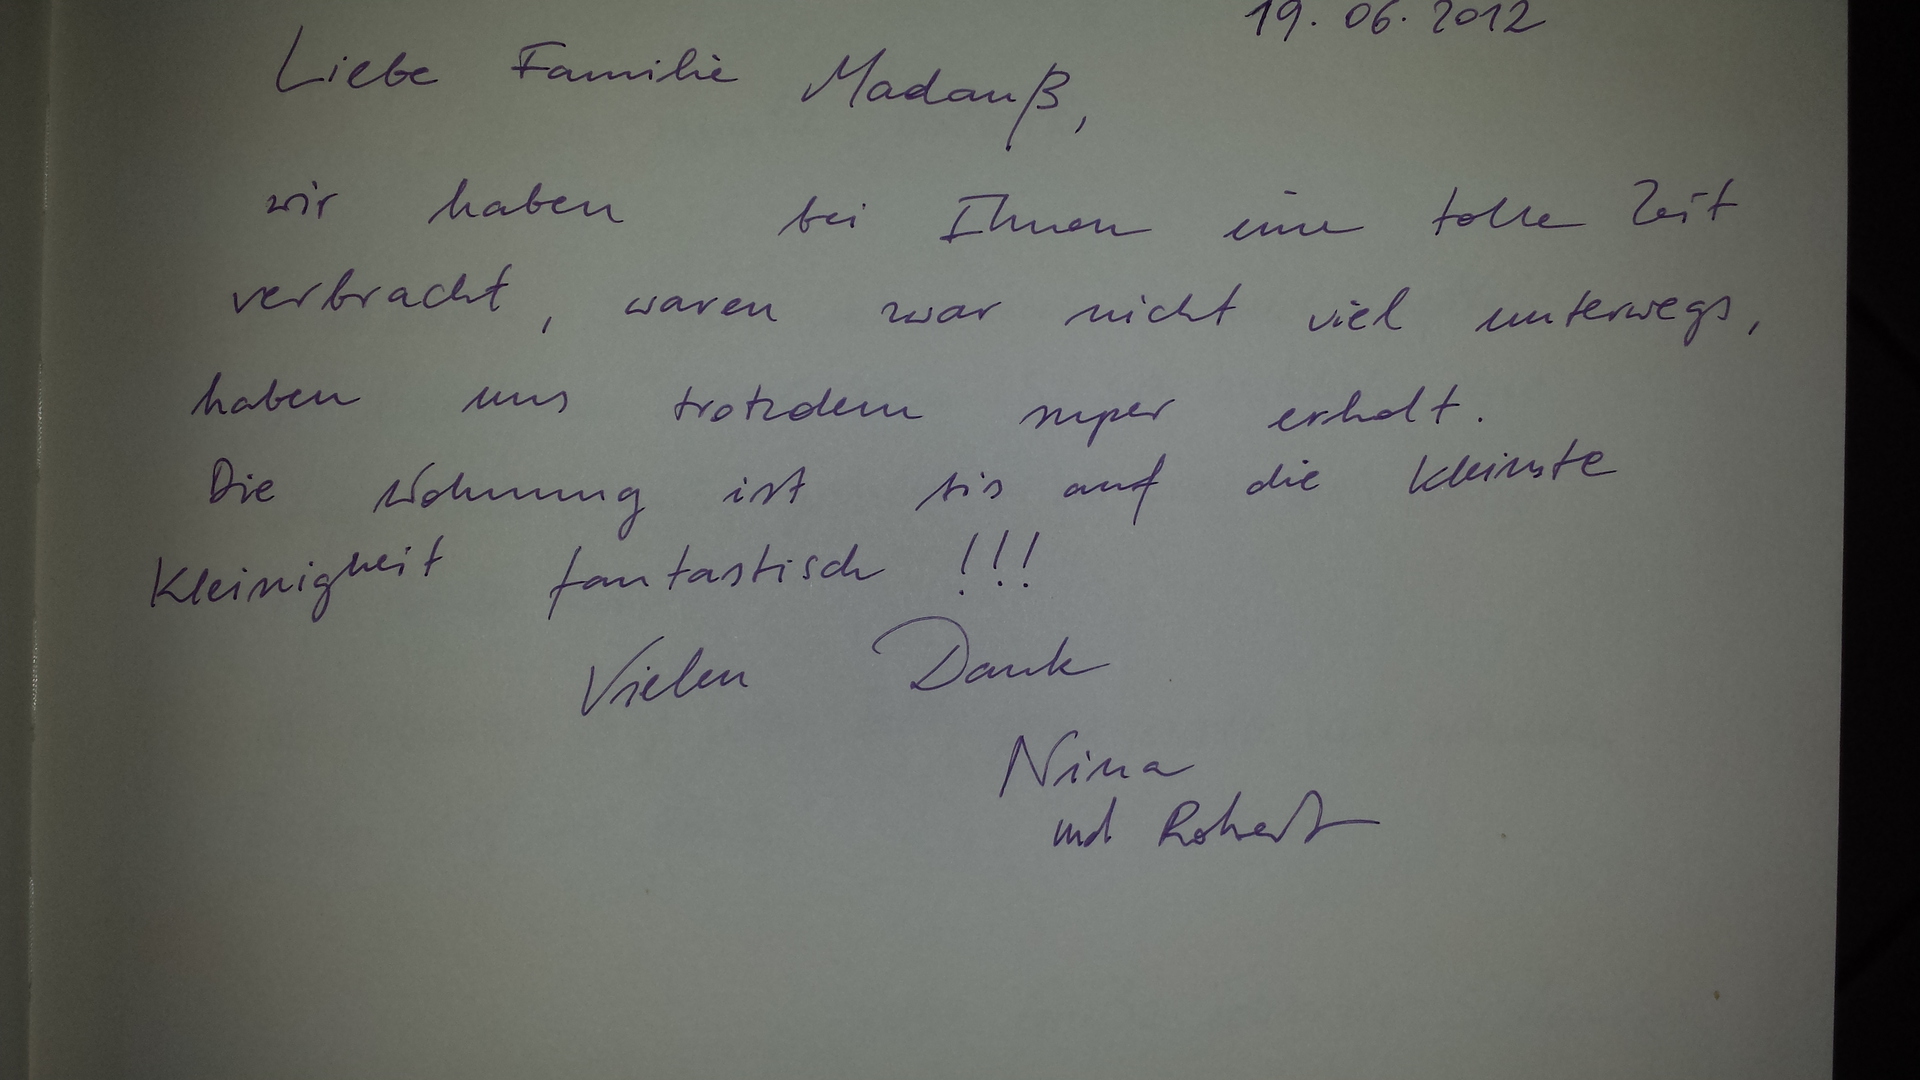 19. 06. 2012
Liebe Familie Madauß,
wir haben bei Ihnen eine tolle Zeit
verbracht, waren zwar nicht viel unterwegs,
haben uns trotzdem super erholt.
Die Wohnung ist bis auf die kleinste
Kleinigkeit fantastisch !!!
Vielen Dank
Nina
und Robert